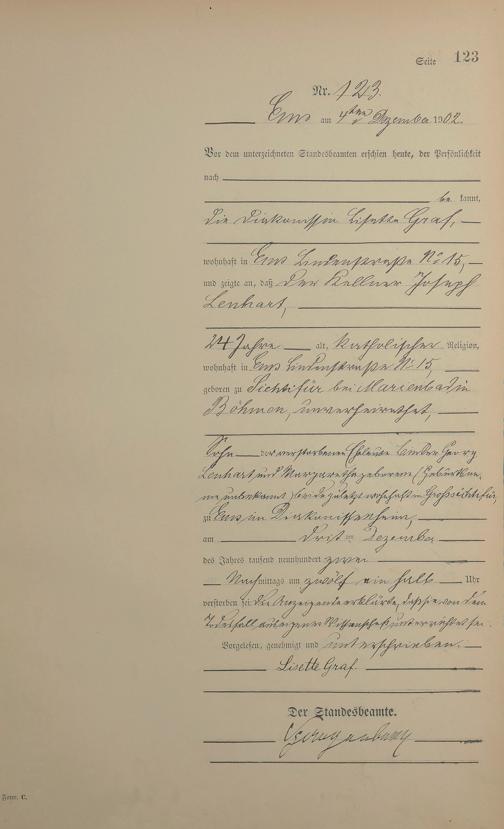 Seite 123
Nr. 123.
Ems am 4ten Dezember 1902.
Vor dem unterzeichneten Standesbeamten erschien heute, der Persönlichkeit
nach
be kannt,
die Diakonissin Lisette Graf,
wohnhaft in Ems Lindenstraße No 15,
und zeigte an, daß der Kellner Joseph
Lenhart,
24 Jahre alt, katholischer Religion,
wohnhaft in Ems Lindenstraße No 15,
geboren zu bei Marienbad in
Böhmen, unverheirathet,
Sohn der verstorbenen Eheleute Georg
Lenhart und Margaretha geborenen (Geburtsna-
me unbekannt) beide zuletzt wohnhaft in
zu Ems im Diakonissenheim,
am dritten Dezember
des Jahres tausend neunhundert zwei
Nachmittags um zwölf ein halb Uhr
verstorben sei. Die Anzeigende erklärte, daß sie von dem
Todesfall aus eigener Wissenschaft unterrichtet sei.
Vorgelesen, genehmigt und unterschrieben.
Lisette Graf.
Der Standesbeamte.
Form. C.